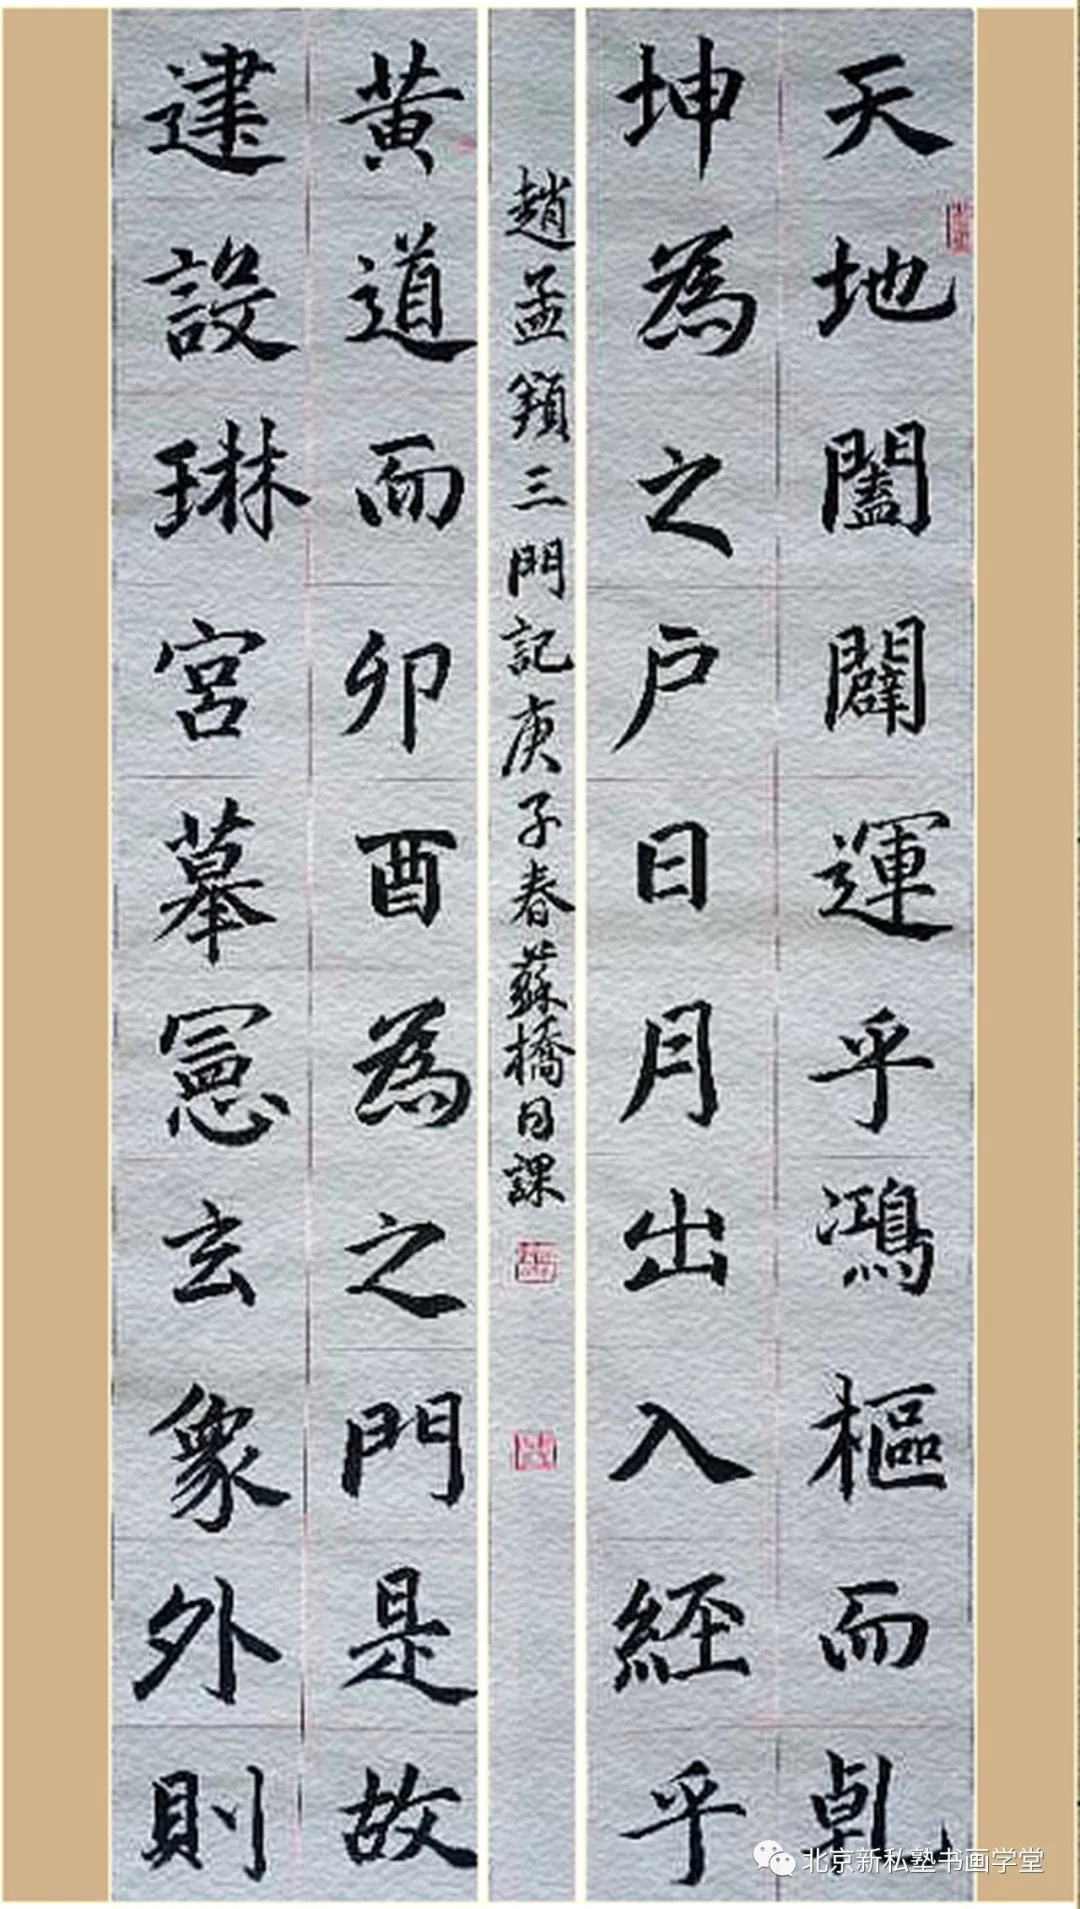 天地闔闢運乎鴻樞而乹
坤為之户日月出入經乎
黄道而卯酉為之門是故
建設琳宮摹憲玄象外則
趙孟頫三門記庚子春蘇橋日課
北京新私塾书画学堂